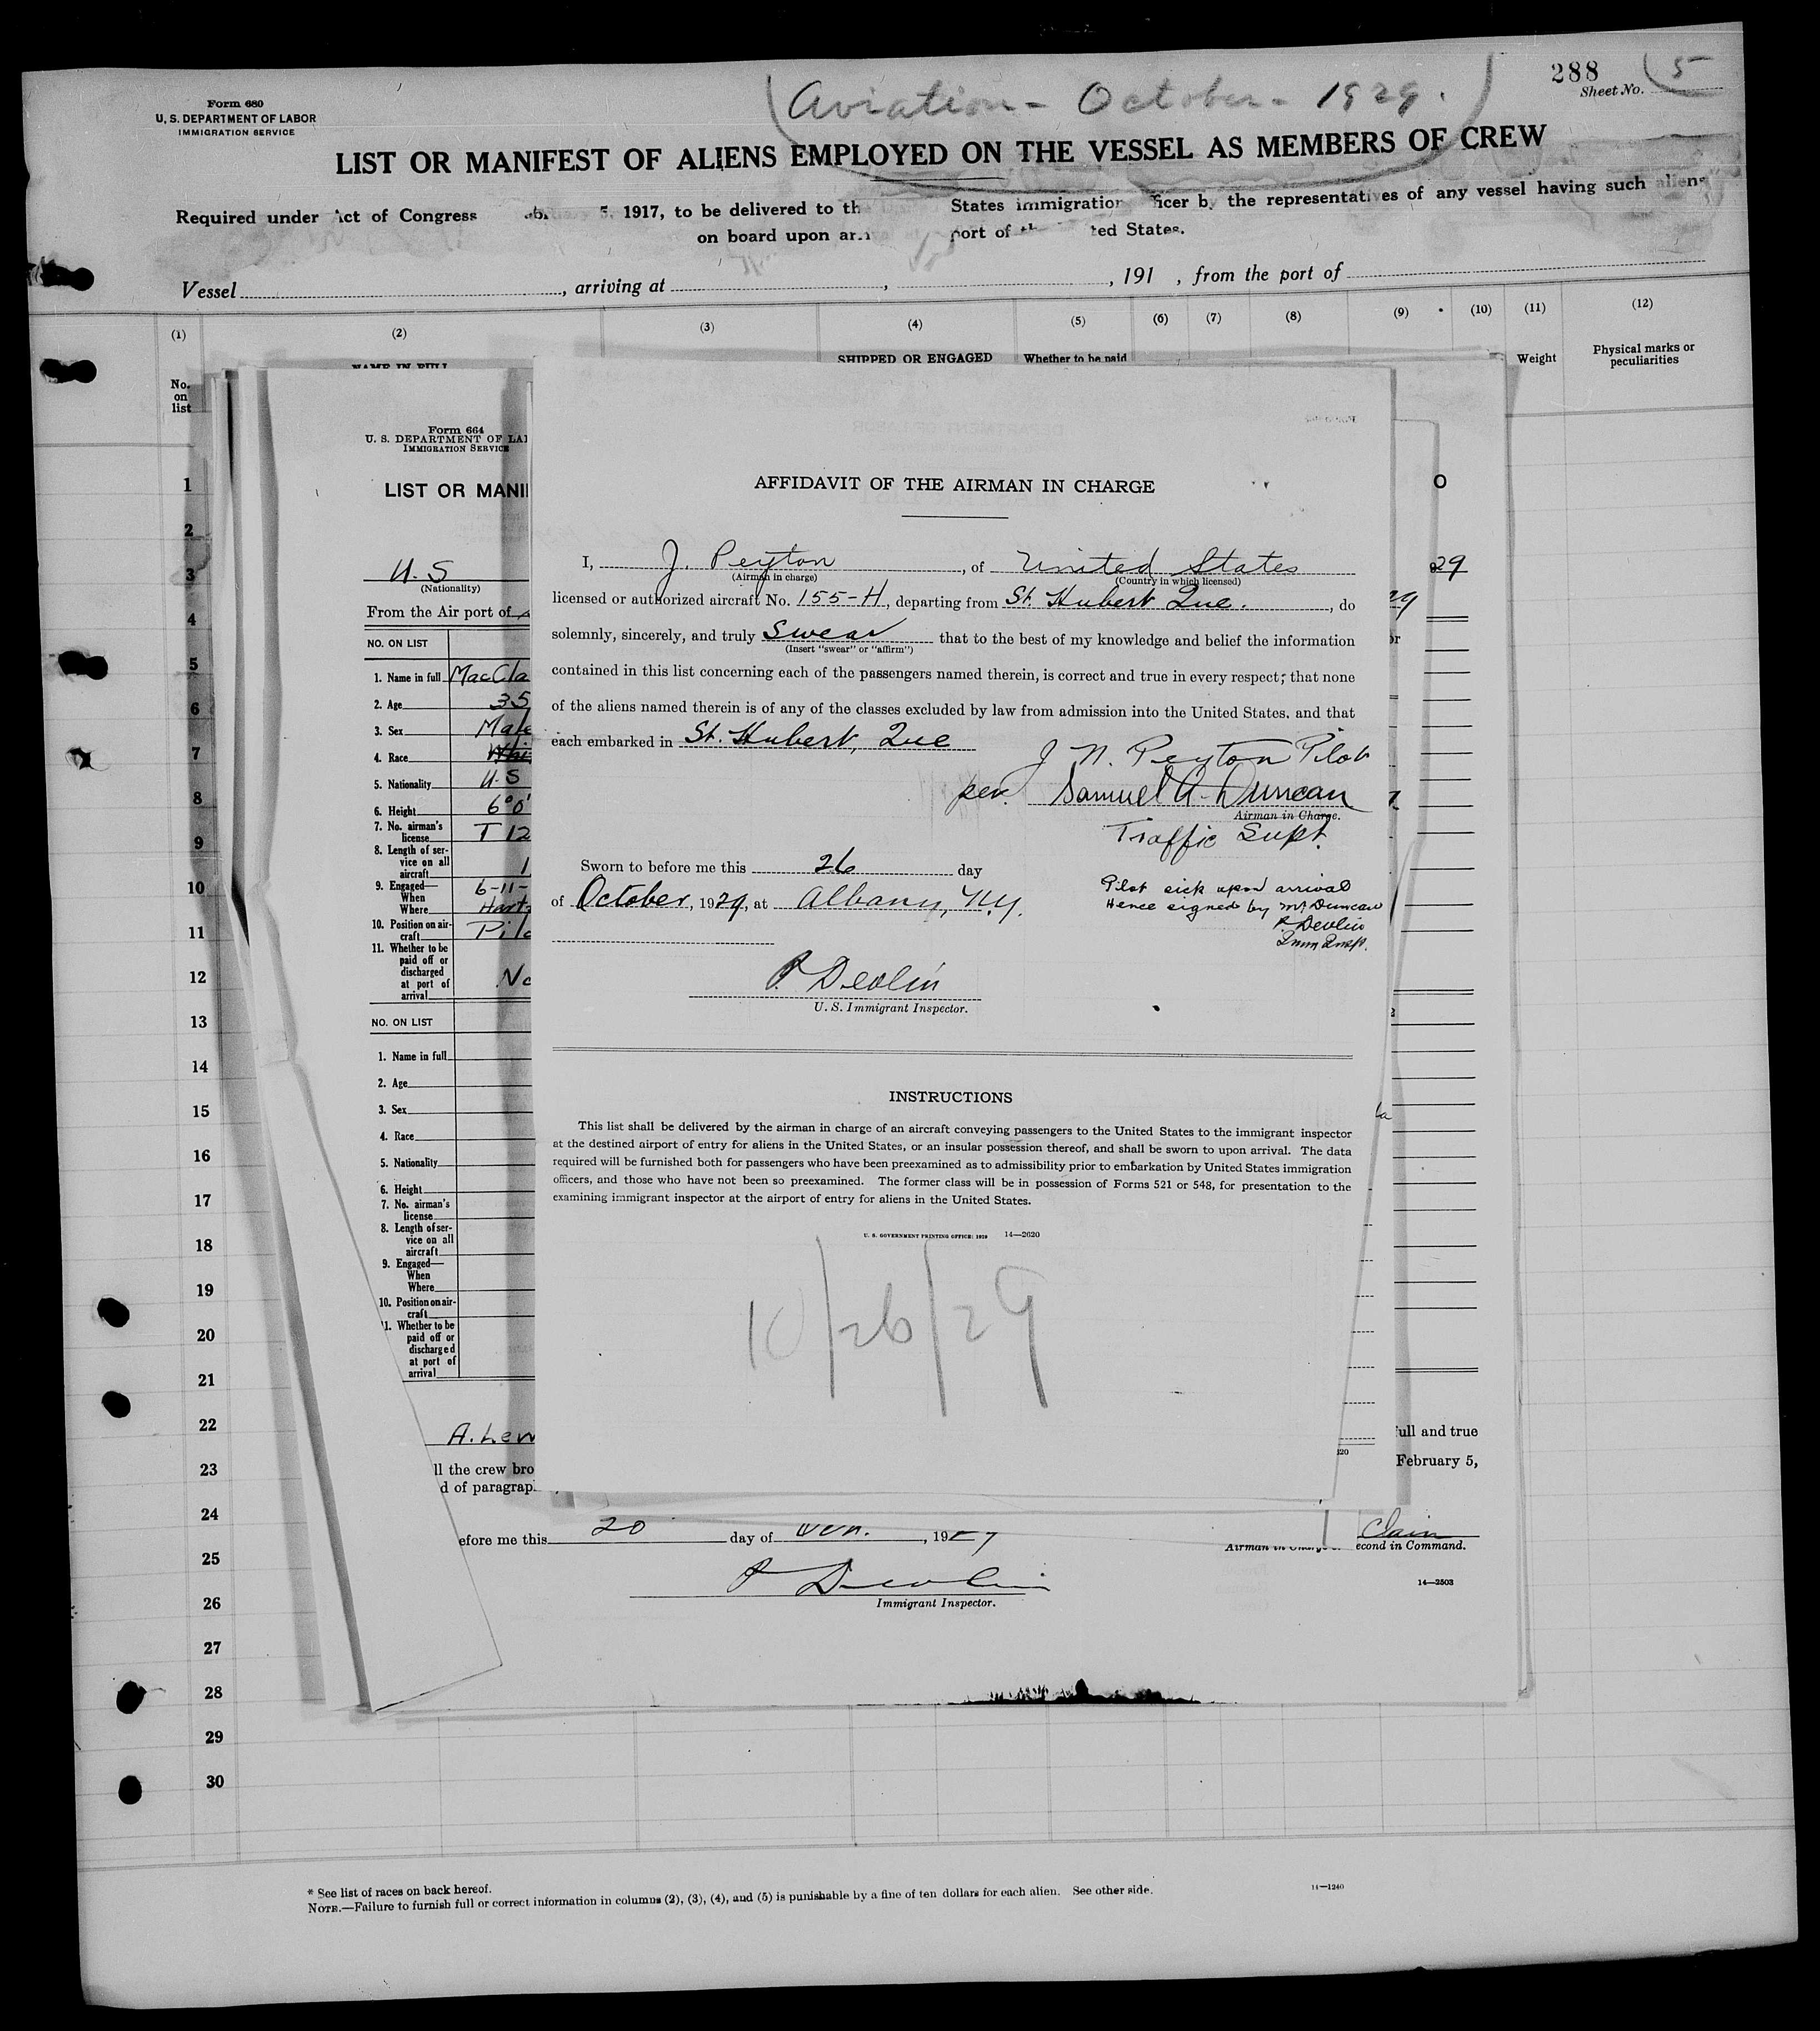 288
Sheet No. 5
Aviation - October - 1929.
Form 680
U. S. DEPARTMENT OF LABOR
IMMIGRATION SERVICE
LIST OR MANIFEST OF ALIENS EMPLOYED ON THE VESSEL AS MEMBERS OF CREW
Required under Act of Congress 5, 1917, to be delivered to th States immigration ficer b the representatives of any vessel having such aliens
on board upon arr port of ted States.
Vessel , arriving at , , 191 , from the port of
(1) (2) (3) (4) (5) (6) (7) (8) (9) (10) (11) (12)
No. on list
NAME IN FULL
SHIPPED OR ENGAGED
Whether to be paid
Weight
Physical marks or peculiarities
1
2
3
4
5
6
7
8
9
10
11
12
13
14
15
16
17
18
19
20
21
22
23
24
25
26
27
28
29
30
Form 664
U. S. DEPARTMENT OF LA
IMMIGRATION SERVICE
LIST OR MANI
U.S
(Nationality)
From the Air port of
NO. ON LIST
1. Name in full MacCla
2. Age 35
3. Sex Male
4. Race Whi
5. Nationality U.S
6. Height 6°0'
7. No. airman's license T 12
8. Length of service on all aircraft 1
9. Engaged—
When 6-11-
Where Hart
10. Position on aircraft Pilo
11. Whether to be paid off or discharged at port of arrival No
NO. ON LIST
1. Name in full
2. Age
3. Sex
4. Race
5. Nationality
6. Height
7. No. airman's license
8. Length of service on all aircraft
9. Engaged—
When
Where
10. Position on aircraft
11. Whether to be paid off or discharged at port of arrival
A. Lew
ll the crew bro
d of paragrap
efore me this 20 day of , 19
P Devlin
Immigrant Inspector.
AFFIDAVIT OF THE AIRMAN IN CHARGE
I, J. Peyton , of United States
(Airman in charge) (Country in which licensed)
licensed or authorized aircraft No. 155-H, departing from St. Hubert Que. , do
solemnly, sincerely, and truly Swear that to the best of my knowledge and belief the information
(Insert "swear" or "affirm")
contained in this list concerning each of the passengers named therein, is correct and true in every respect; that none
of the aliens named therein is of any of the classes excluded by law from admission into the United States, and that
each embarked in St. Hubert, Que
J N. Peyton Pilot
per. Samuel A. Duncan
Airman in Charge.
Traffic Supt.
Sworn to before me this 26 day
of October, 1929, at Albany, N.Y.
Pilot sick upon arrival
Hence signed by Mr Duncan
P. Devlin
Imm Insp.
P. Devlin
U. S. Immigrant Inspector.
INSTRUCTIONS
This list shall be delivered by the airman in charge of an aircraft conveying passengers to the United States to the immigrant inspector
at the destined airport of entry for aliens in the United States, or an insular possession thereof, and shall be sworn to upon arrival. The data
required will be furnished both for passengers who have been preexamined as to admissibility prior to embarkation by United States immigration
officers, and those who have not been so preexamined. The former class will be in possession of Forms 521 or 548, for presentation to the
examining immigrant inspector at the airport of entry for aliens in the United States.
U. S. GOVERNMENT PRINTING OFFICE: 1929 14—2620
10/26/29
O
29
ull and true
February 5,
Clain
econd in Command.
14—2503
* See list of races on back hereof.
NOTE.—Failure to furnish full or correct information in columns (2), (3), (4), and (5) is punishable by a fine of ten dollars for each alien. See other side.
14—1240